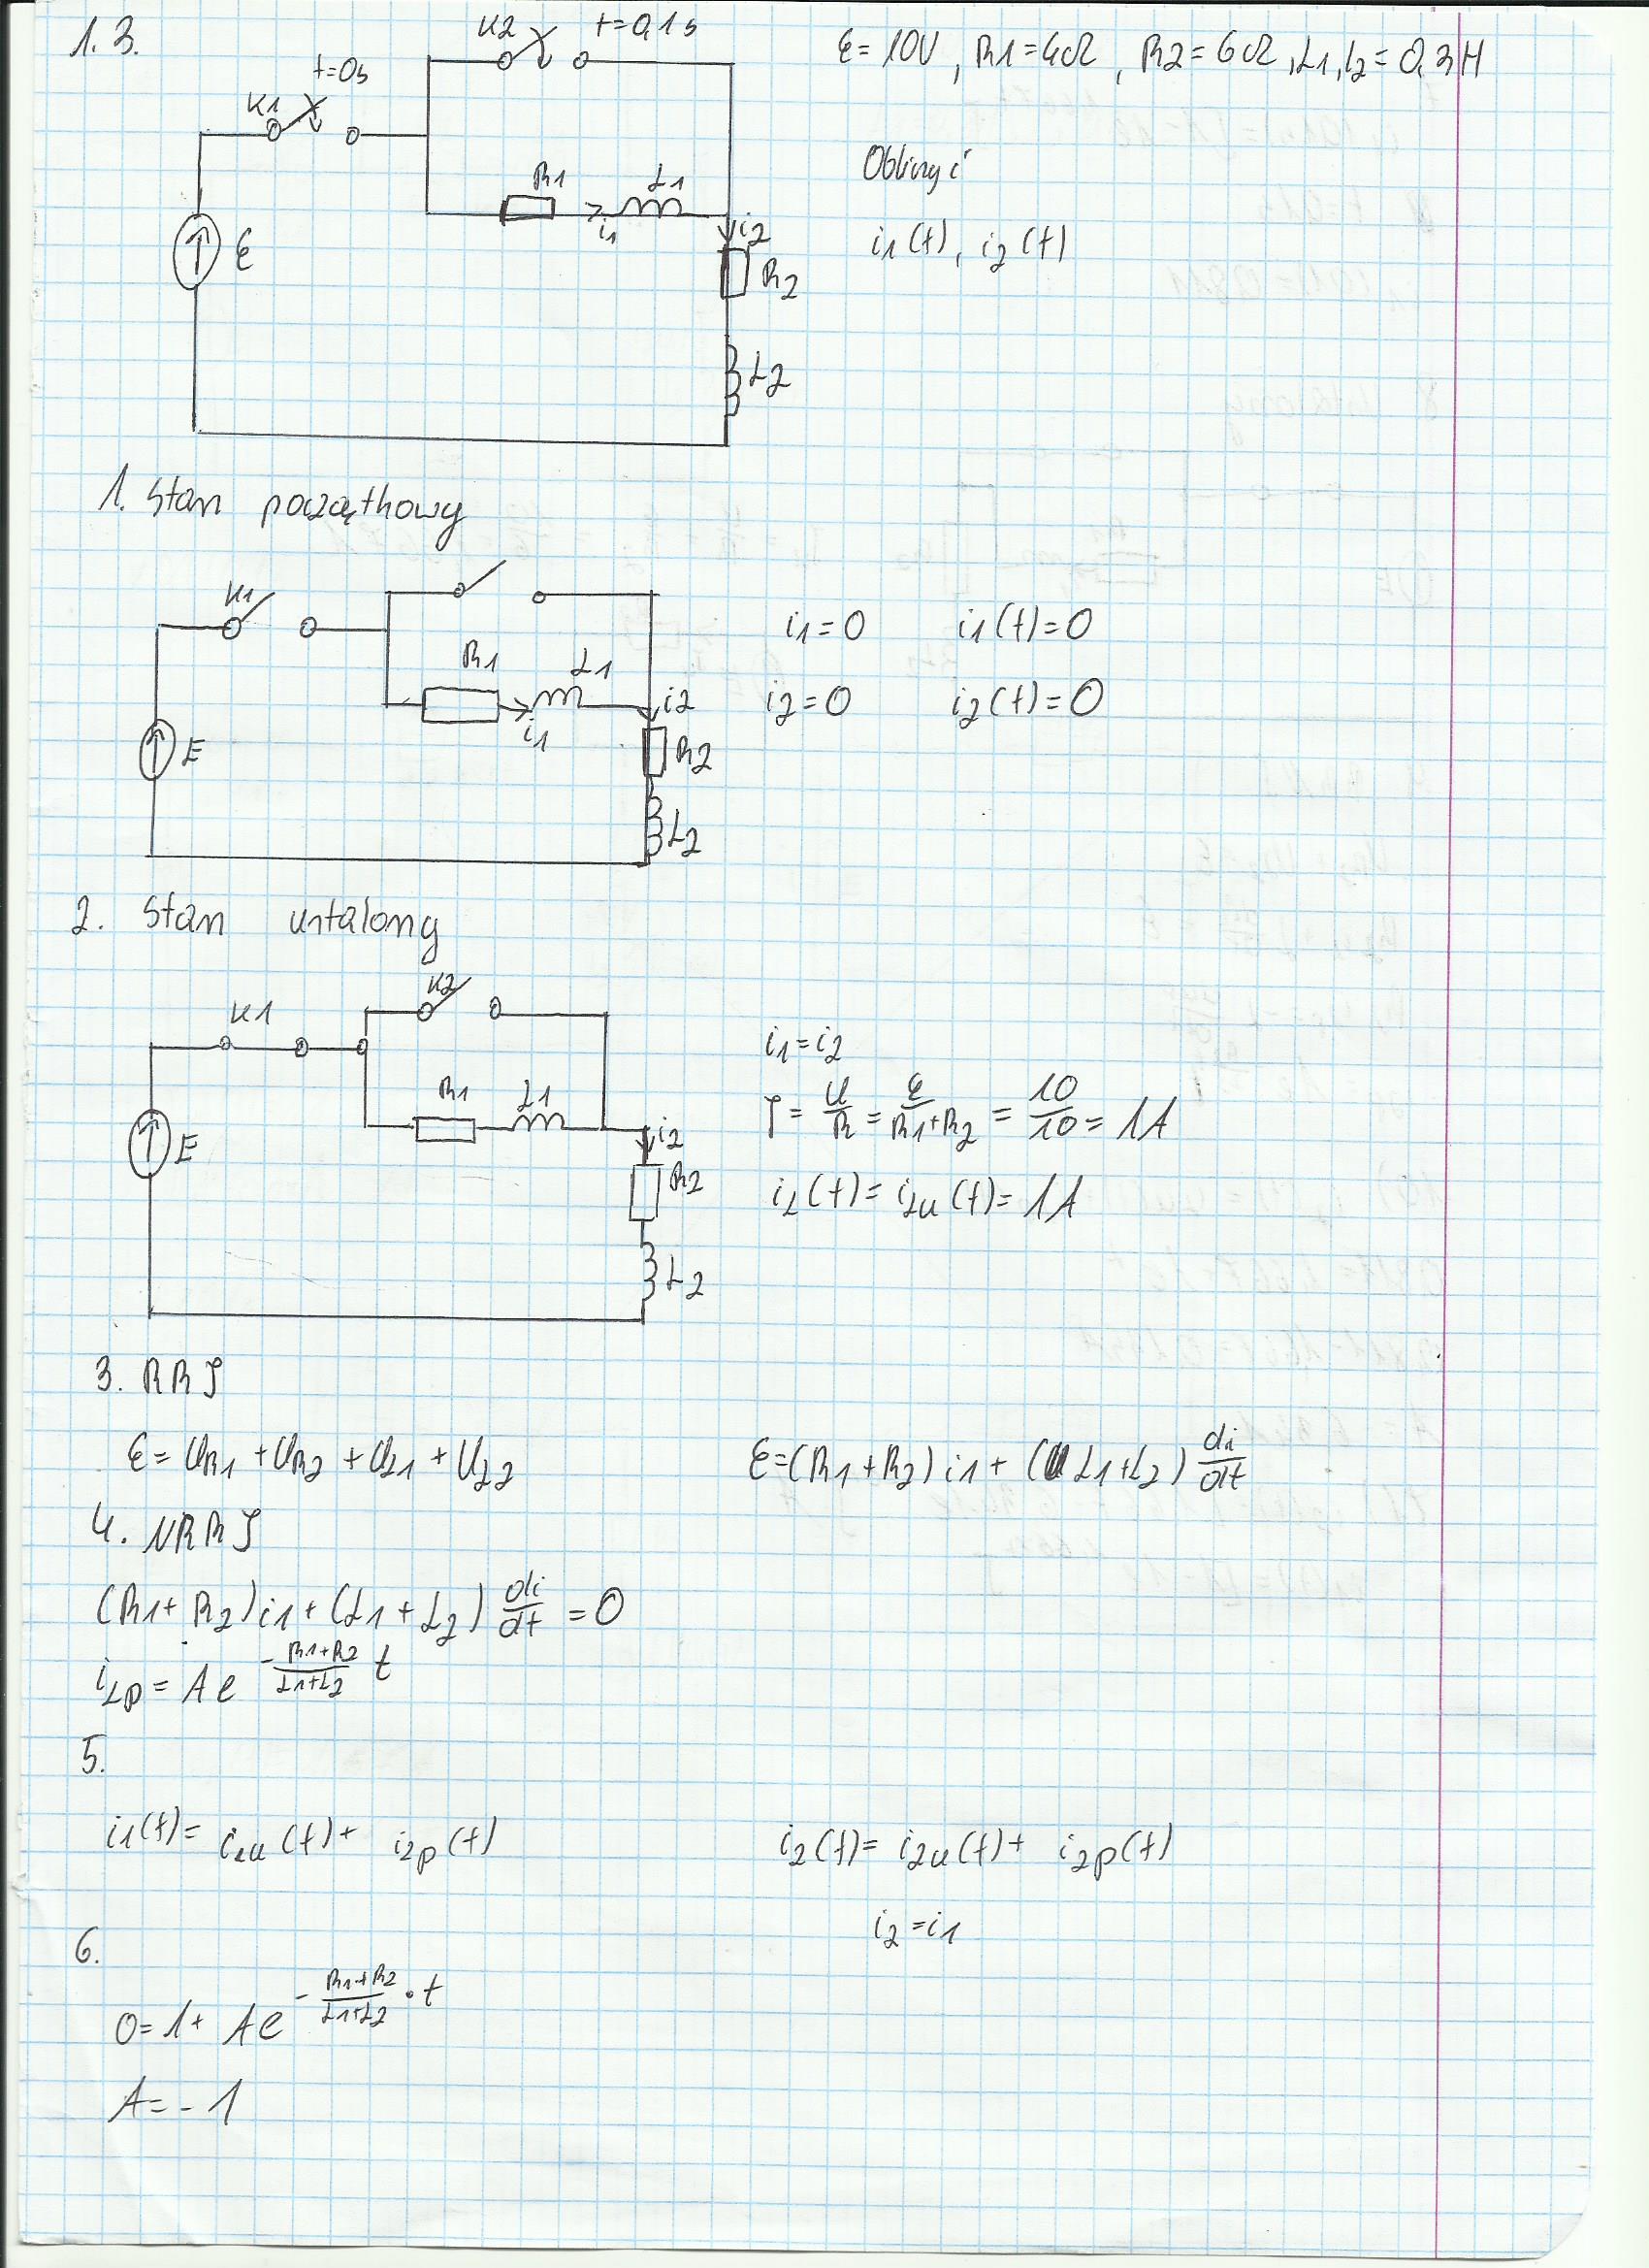 1.3.
K2 t=0,1s
E=10V, R1=4Ω, R2=6Ω, L1, L2=0,3H
t=0s
K1
R1 L1
i1
i2
E
R2
L2
Obliczyć
i1(t), i2(t)
1. Stan początkowy
K1
R1 L1
i1
i2
E
R2
L2
i1=0 i1(t)=0
i2=0 i2(t)=0
2. Stan ustalony
K2
K1
R1 L1
E
i2
R2
L2
i1=i2
I = U/R = E/(R1+R2) = 10/10 = 1A
iL(t) = i2u(t) = 1A
3. RRJ
E = UR1 + UR2 + UL1 + UL2 E=(R1+R2) i1 + (L1+L2) di/dt
4. NRRJ
(R1+R2) i1 + (L1+L2) di/dt = 0
iLp = A e^(-(R1+R2)/(L1+L2) t)
5.
i1(t) = i2u(t) + i2p(t) i2(t) = i2u(t) + i2p(t)
i2=i1
6.
0 = 1 + A e^(-(R1+R2)/(L1+L2) · t)
A = -1